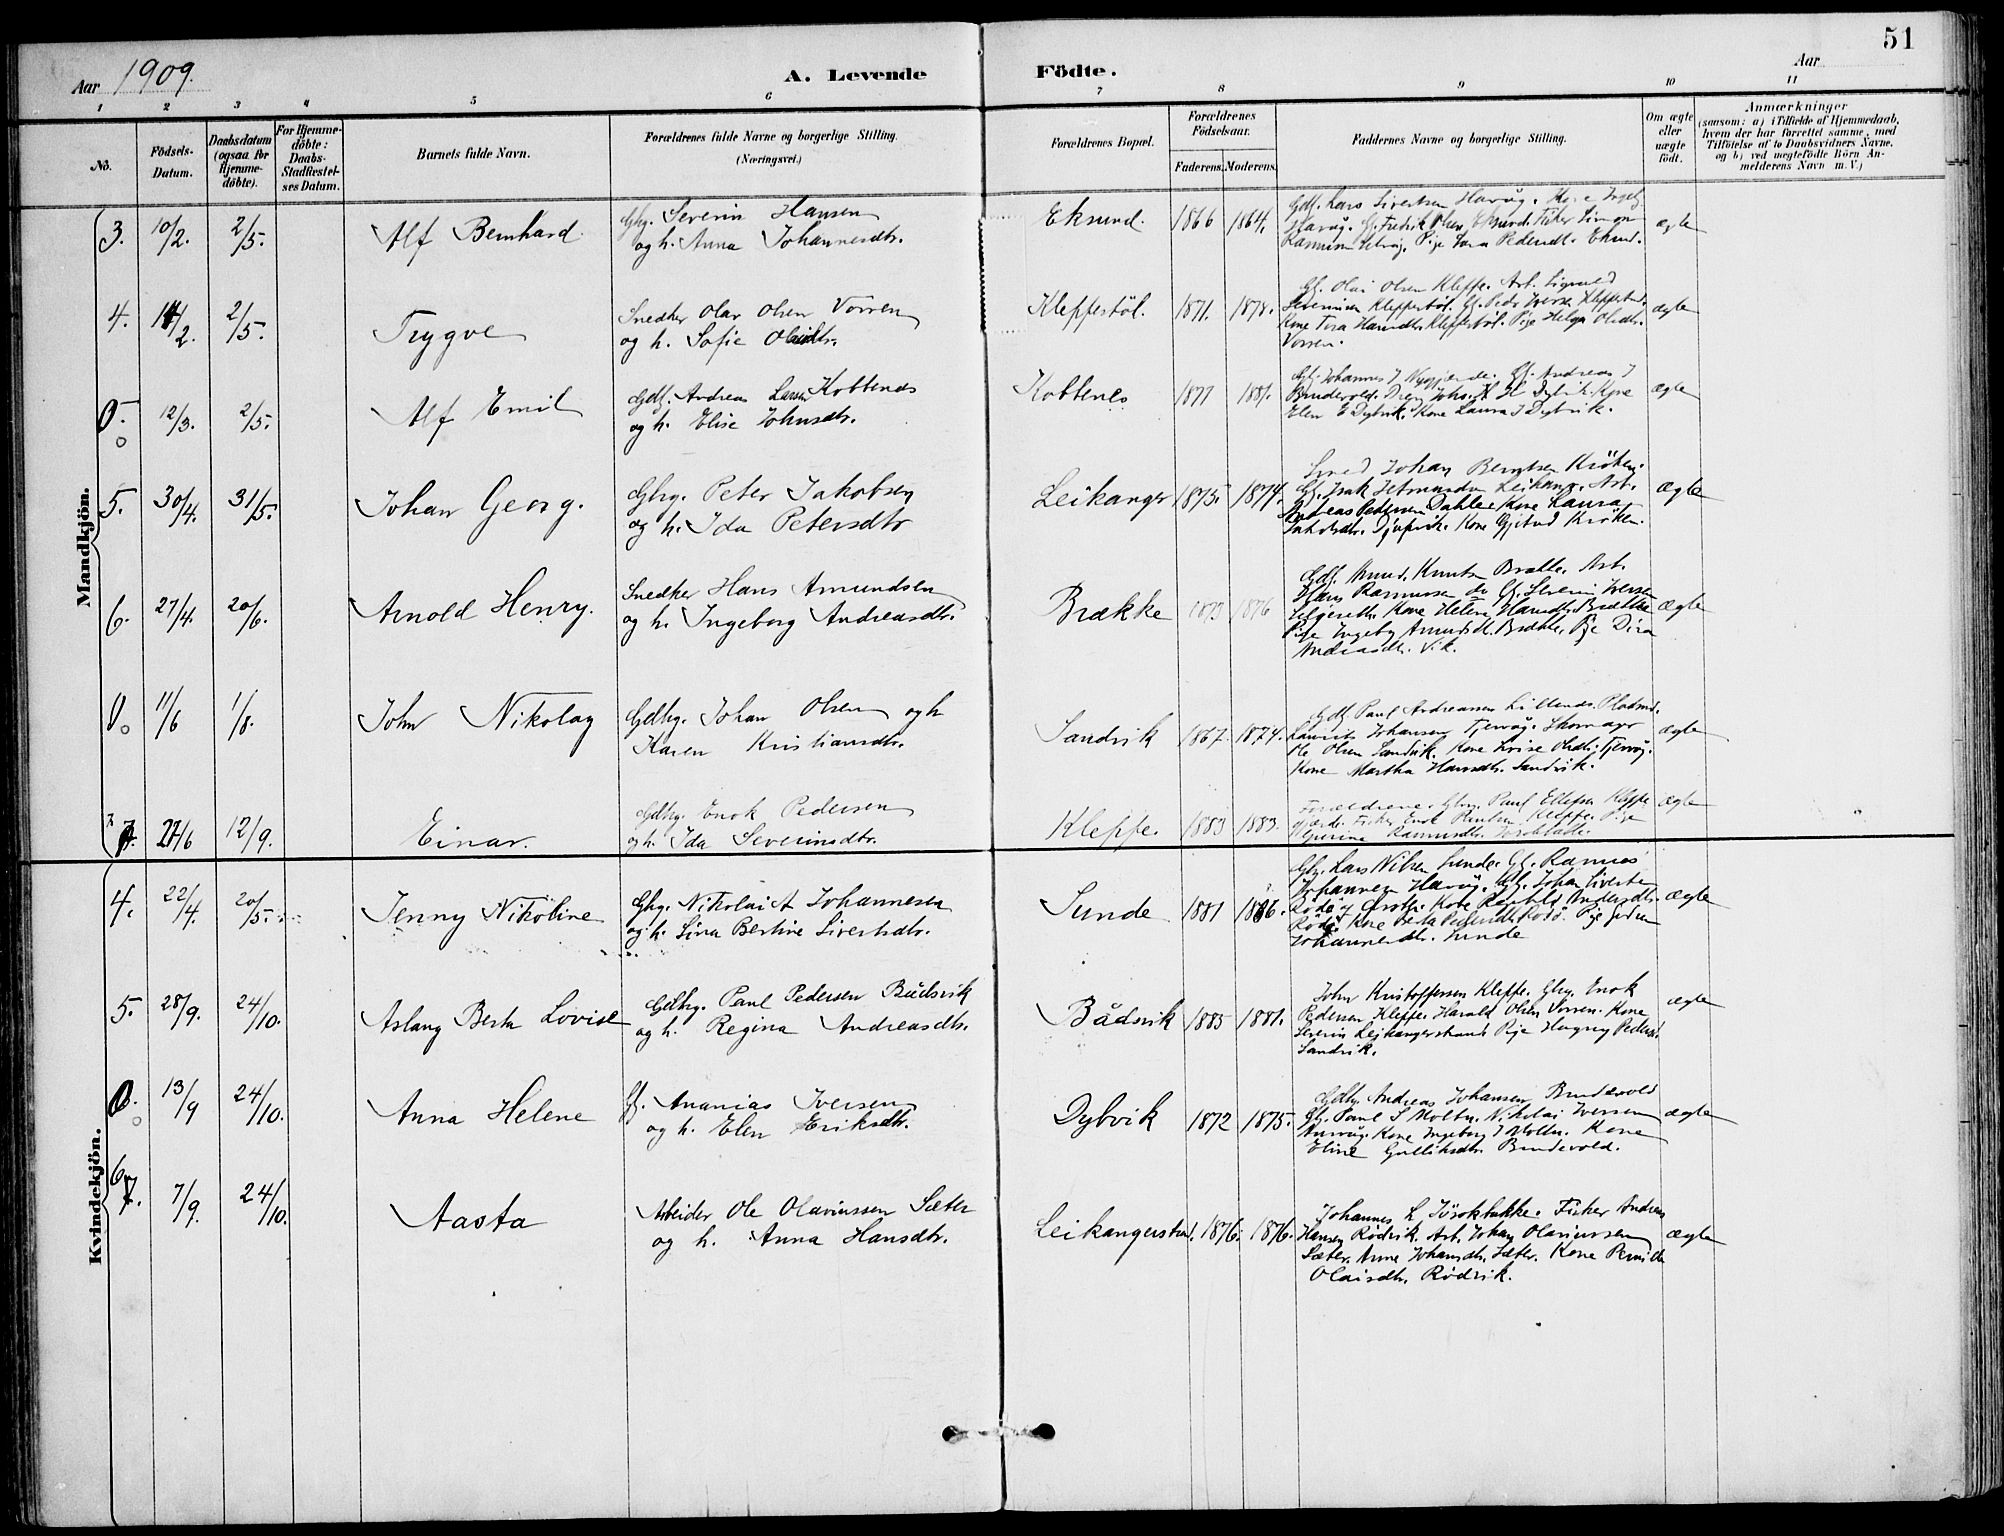 51
Aar 1909.
A. Levende Födte.
Aar
1 2 3 4 5 6 7 8 9 10 11
No.
Födsels-
Datum.
Daabsdatum
(ogsaa for
Hjemme-
döbte).
For Hjemme-
döbte:
Daabs-
Stadfæstel-
ses Datum.
Barnets fulde Navn.
Forældrenes fulde Navne og borgerlige Stilling.
(Næringsvei.)
Forældrenes Bopæl.
Forældrenes
Födselsaar.
Faderens. Moderens.
Faddernes Navne og borgerlige Stilling.
Om ægte
eller
uægte
födt.
Anmærkninger
(saasom: a) i Tilfælde af Hjemmedaab,
hvem der har forrettet samme, med
Tilföielse af to Daabsvidners Navne,
og b) ved uægtefödte Börn An-
melderens Navn m. V.)
Mandkjön.
3. 10/2. 2/5. Alf Bernhard.
Gbg. Severin Hansen
og h. Anna Johannesdtr.
Eksund. 1866 1864.
Gdf. Lars Sivertsen Havåg. Kone
Havåg. G. Fredrik Olsen, Eksund. Fisker Simon
Pige Pedersdt. Eksund.
ægte
4. 2/5. Trygve
Snedker Olav Olsen Vorren
og h. Sofie Olaidtr.
Kleppestöl. 1871. 1878.
Gf. Olai Olsen Kleppe. Arb. Sigurd
Severinsen Kleppestöl. Gf. Peder Iversen Kleppestöl.
Kone Tora Hansdtr. Kleppestöl. Pige Helga Olsdtr.
Vorren.
ægte
0. 12/3. 2/5. Alf Emil
Gdf. Andreas Larsen Kobbenes
og h. Elise Johnsdtr.
Kobbenes 1877 1881.
Johannes J Andreas J
Brudevold. Dreng Johs. H Dybvik. Kone
Elen E Dybvik. Kone Laura J Dybvik.
ægte
5. 30/4. 31/5. Johan Georg.
Gbrg. Peter Jakobsen
og h. Ida Petersdtr
Leikanger 1873. 1874.
Smed Johan Berntsen Kröken.
Gf. Isak Leikang. Arb.
Andreas Pedersen Dahle. Kone Laura
Jakobsdtr. Djupvik. Kone Kröken.
ægte
6. 27/4. 20/6. Arnold Henry.
Snedker Hans Amundsen
og h. Ingeborg Andreasdtr.
Brække 1873 1876
Gdf. Knutsen Brække. Arb.
Hans Rasmussen do Gf. Severin Iversen
Kone Helene Hansdtr. Brække
Pige Ingeborg Amundsdt. Brække, Pige Dina
Andreasdtr. Vik.
ægte
0. 11/6 1/8. John Nikolay
Gdbg. Johan Olsen og h
Karen Kristiansdtr.
Sandvik 1867. 1874.
Gdf. Paul Andreassen Lillenes.
Laurits Johansen Tjervåg. Skomager
Ole Olsen Sandvik. Kone Lovise Olsdt. Tjervåg.
Kone Martha Hansdtr. Sandvik.
ægte
7. 27/6 12/9. Einar.
Gdbg. Enok Pedersen
og h. Ida Severinsdtr.
Kleppe. 1883 1883.
Forældrene. Gbrg. Paul Ellefsen Kleppe
Fisker Enok Kleppe. Pige
Rasmusdtr.
ægte
Kvindekjön.
4. 22/4. 20/5. Jenny Nikoline
Gbg. Nikolai A Johannesen
og h. Lina Bertine Sivertsdtr.
Sunde 1881 1886.
Gbg. Lars Nilsen Sunde. Gf. Rasmus
Johannesen Havåg. Gf. Johan Sivertsen
Röde og Kone Andersdtr.
Röde. Kone Berta Pedersdt. Röde. Pige
Johannesdtr. Sunde
ægte
5. 28/9. 24/10. Aslaug Berta Lovise
Gdbg. Paul Pedersen Bådsvik
og h. Regina Andreasdtr.
Bådsvik 1885 1881.
John Kristoffersen Kleppe. Gbrg. Enok
Pedersen Kleppe. Harald Olsen Vorren. Kone
Severin Leikangerstrand. Pige Pedersdt.
Sandvik.
ægte
0. 13/9 24/10. Anna Helene
Gf. Ananias Iversen
og h. Elen Eriksdtr.
Dybvik 1872 1875.
Gdbg. Andreas Johansen Brudevold
Gf. Paul S Moltu. Nikolai Iversen
Kone Ingeborg J Moltu. Kone
Eline Gulliksdtr. Brudevold.
ægte
6 7. 7/9. 24/10. Aasta
Arbeider Ole Olavinssen Sæter
og h. Anna Hansdtr.
Leikangerstrd. 1876. 1876.
Johannes L Fisker Andreas
Hansen Rödvik. Arb. Johan Olavinssen
Sæter. Anne Johansdtr. Sæter. Kone Pernille
Olaisdtr. Rödvik.
ægte